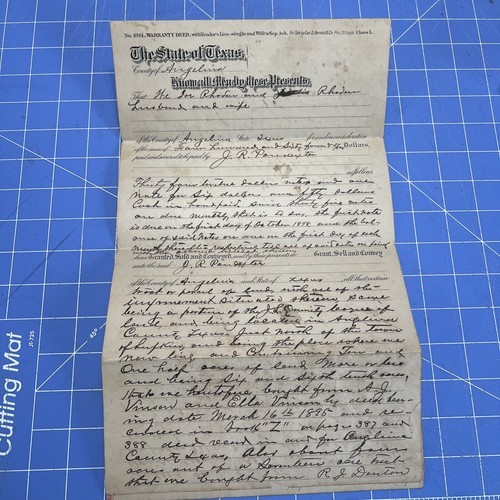 No. 1081. WARRANTY DEED, with Vendor's Lien—single and Wife's Sep. Ack. Class 1.
The State of Texas,
County of Angelina
Know all Men by these Presents:
That We Joe Rhoden and Rhoden
husband and wife
of the County of Angelina State Texas for and in consideration
of the sum of Four hundred and Sixty four Dollars,
paid and secured to be paid by J. R. Poindexter
as follows
Thirty four twelve dollars notes and one
note for Six dollars and fifty dollars
Cash in hand paid Said thirty five notes
are due monthly that is to say, the first note
is due on the first day of October 1898 and the bal-
ance of said notes are due on the first day of each
have Granted, Sold and Conveyed, and by these presents do Grant, Sell and Convey
unto the said J. R. Poindexter
of the County of Angelina and State of Texas all that certain
tract or parcel of land
Situated Same
being a portion of the J. L. Quinalty league of
land and being located in Angelina
County Texas Just North of the town
of Lufkin and being the place where we
now live and Containing Ten and
One half acres of land More or less
and being Six and
that we heretofore bought from A. J.
Vinson and Ella Vinson by deed bear-
ing date March 16th 1895 and re-
corded in book "Z" on pages 387 and
388 deed record in and for Angelina
County Texas. Also about four
acres out of a
that we bought from R. J. Denton
Cutting Mat
JT-725
45°